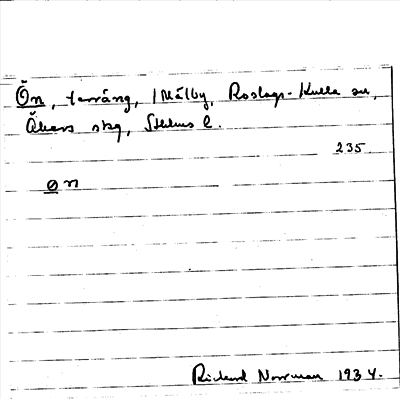 Ön, terräng, i Målby, Roslags-Kulla sn,
Åkers skg, Sthlms l.
235
ø n
Rickard Norrman 1934.